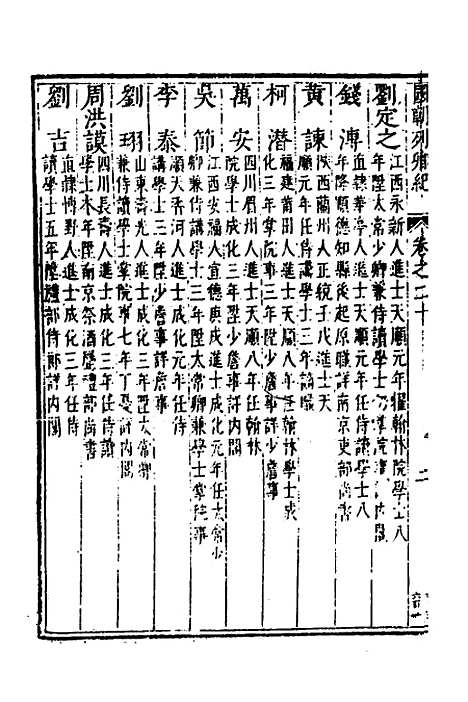 國朝列卿紀 卷之二十
劉定之 江西永新人進士天順元年擢翰林院學士八
年陞太常少卿兼侍讀學士 掌院事 內閣
錢溥 直隸華亭人進士天順元年任侍讀學士八
年降順德知縣後起原職詳南京吏部尚書
黃諫 陝西蘭州人正統壬戌進士天
順元年任侍講學士三年謫
柯潛 福建莆田人進士天順八年翰林學士成
化三年掌院事三年陞少詹事詳少詹事
萬安 四川眉州人進士天順八年任翰林
院學士成化三年陞少詹事詳內閣
吳節 江西安福人宣德庚戌進士成化元年任太常少
卿兼侍講學士三年陞太常卿兼學士掌院事
李泰 順天香河人進士成化元年任侍
講學士三年陞少詹事詳詹事
劉珝 山東壽光人進士成化三年陞太常卿
兼侍讀學士掌院事七年丁憂詳內閣
周洪謨 四川長壽人進士成化三年任侍讀
學士本年陞南京祭酒歷禮部尚書
劉吉 直隸博野人進士成化三年任侍
讀學士五年陞禮部侍郎詳內閣